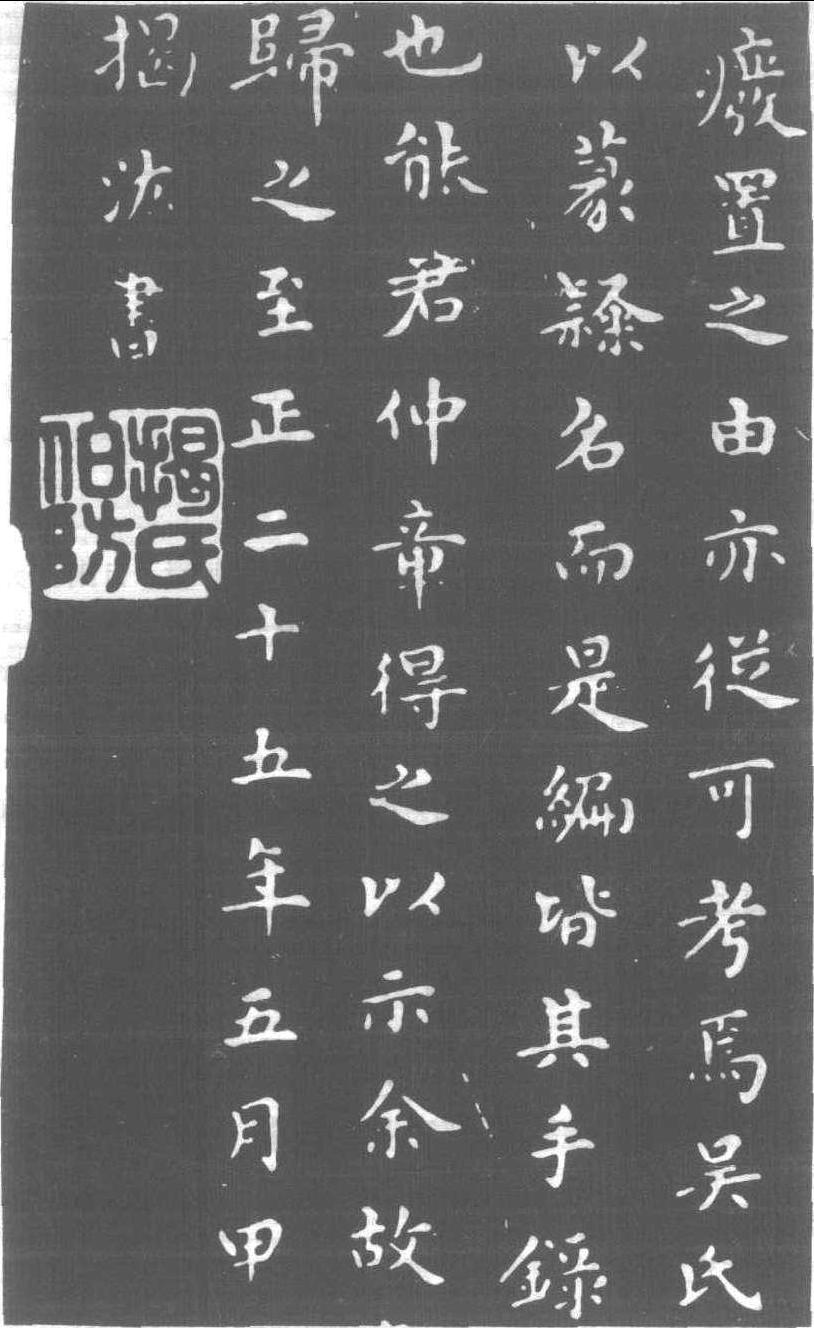 癈置之由亦從可考焉吴氏
以篆隸名而是編皆其手錄
也熊君仲章得之以示余故
歸之至正二十五年五月甲
揭汯書
揭氏伯防